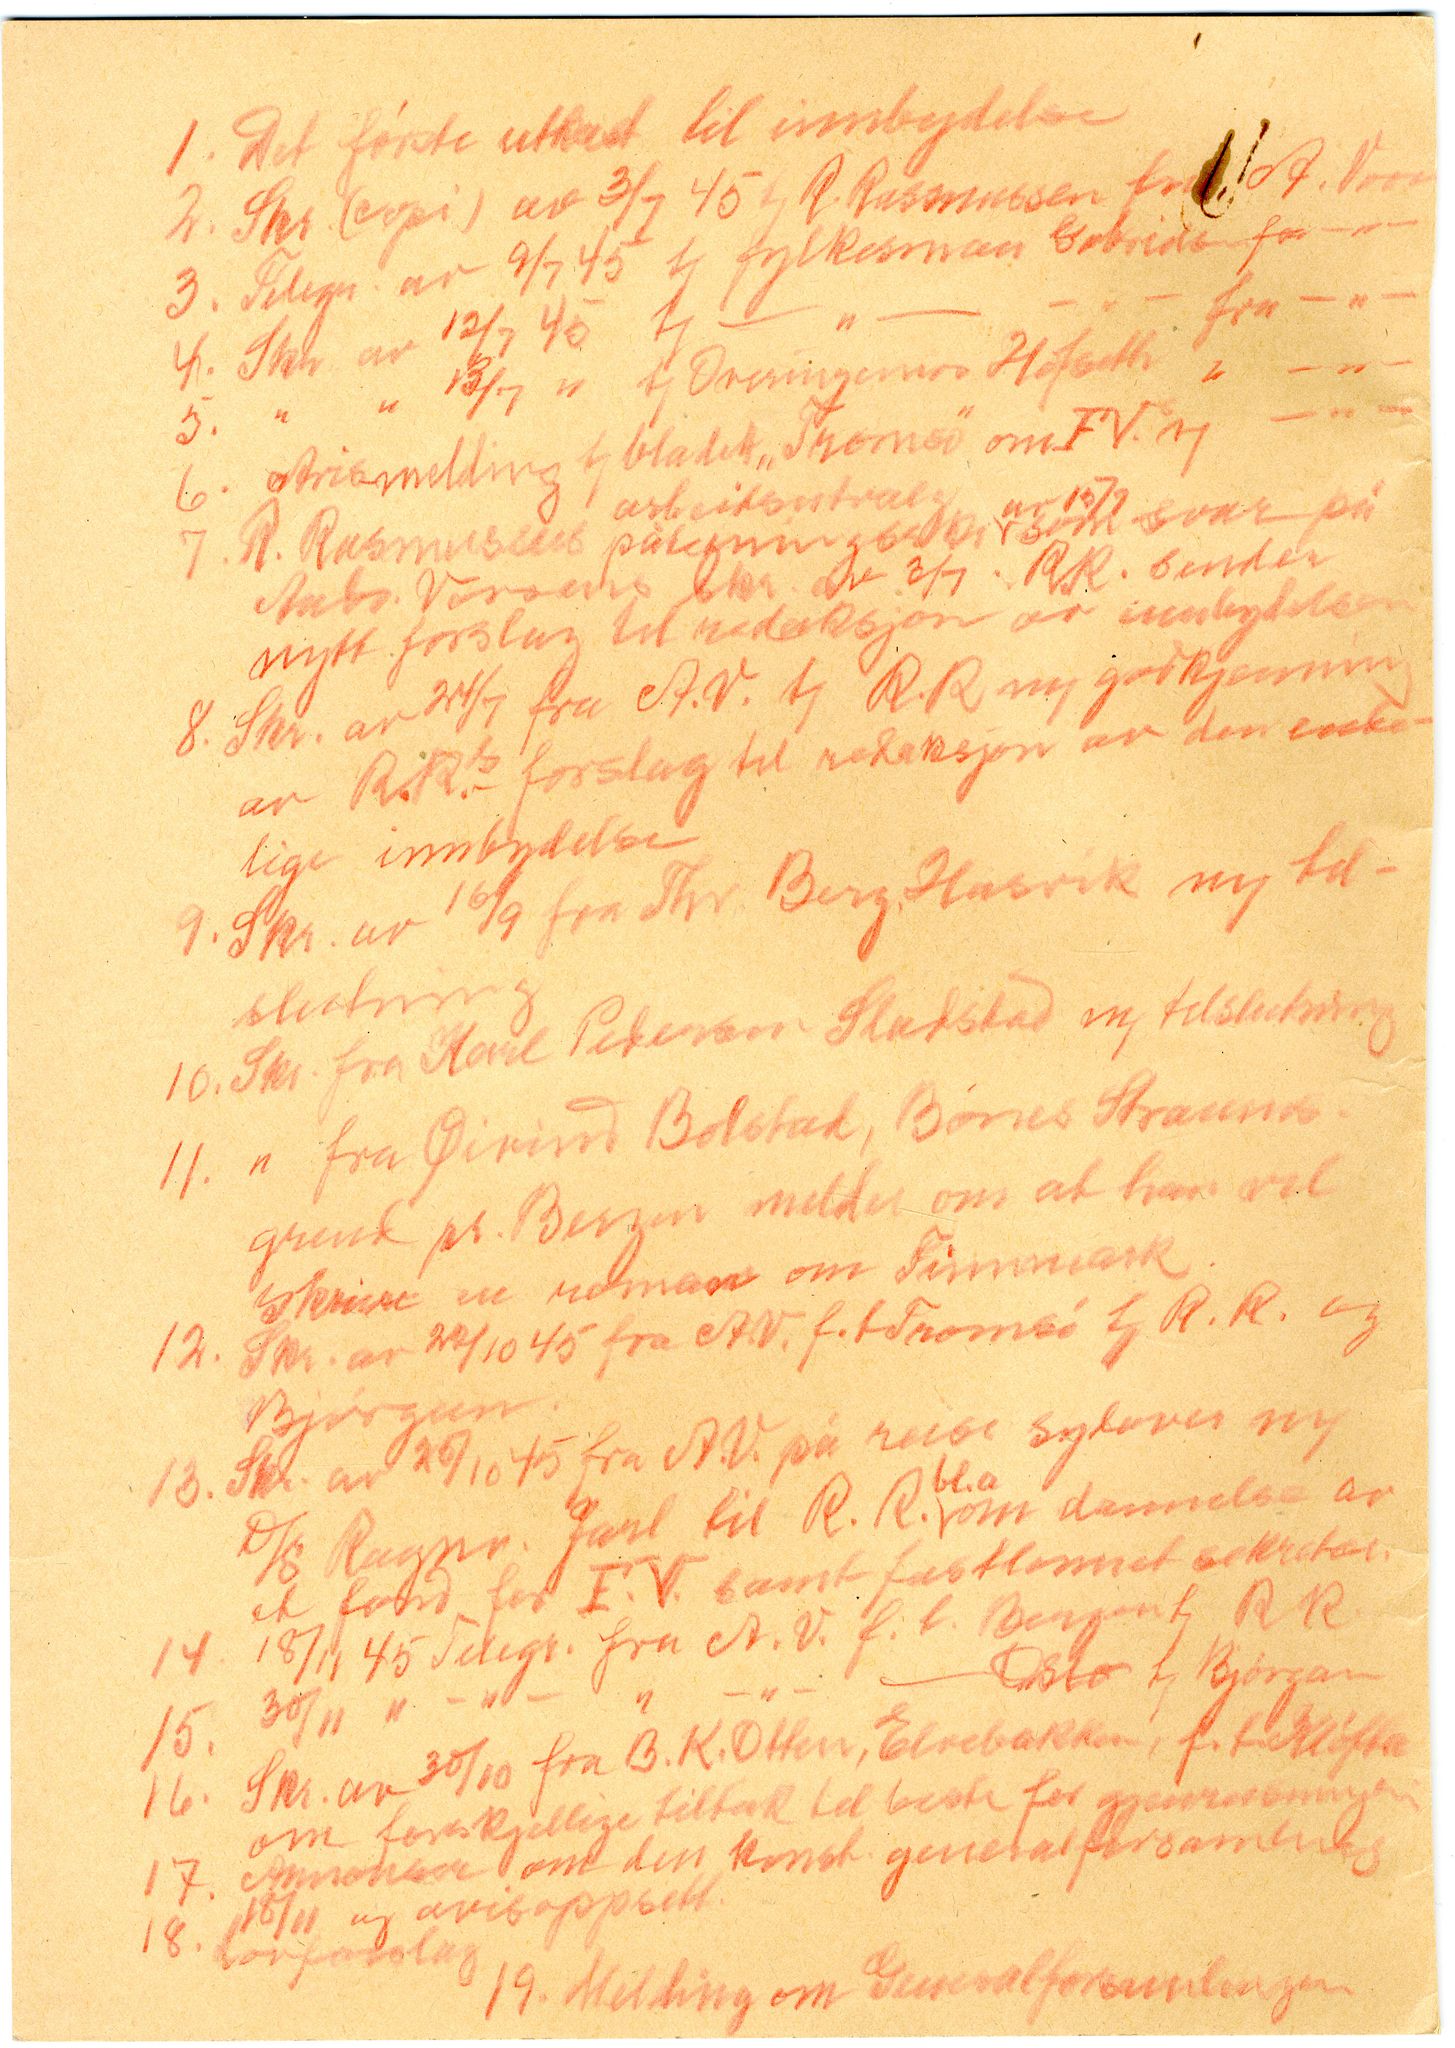 1. Det første utkast til innbydelse
2. Skr. (copi) av 3/7 45 t/ R. Rasmussen fra A. Vor
3. Telegr. av 9/7 45 t/ fylkesman Gabrielsen fra — " —
4. Skr. av 12/7 45 t/ — " — — " — fra — " —
5. " " 13/7 " t/ Overingeniør Hofseth " — " —
6. Avismelding t/ bladet „Tromsø" om F.V.s — " —
arbeidsutvalg
7. R. Rasmussens påtegningsskr. av 15/9 som svar på
Aabs. Vorrens skr. av 3/7. R.R. sender
nytt forslag til redaksjon av innbydelsen
8. Skr. av 24/7 fra A.V. t/ R.R m/ godkjenning
av R.R.s forslag til redaksjon av den ende-
lige innbydelse
9. Skr. av 16/9 fra Thv. Berg, Hasvik m/ til-
slutning
10. Skr. fra Karl Pedersen Sladstad m/ tilslutning
11. " fra Øivind Bolstad, Bønes Straums-
grend pr. Bergen melder om at han vil
skrive en roman om Finnmark.
12. Skr. av 22/10 45 fra A.V. f.t Tromsø t/ R.R. og
Bjørgan.
13. Skr. av 26/10 45 fra A.V. på reise sydover m/
D/S Ragnv. Jarl til R.R. bl.a om dannelse av
et fond for F.V. samt fastlønnet sekretær.
14. 18/11 45 Telegr. fra A.V. f.t. Bergen t/ R R.
15. 30/11 " — " — " — " — Oslo t/ Bjørgan
16. Skr. av 30/10 fra B.K. Otten, Elvebakken, f.t. Kløfta
om forskjellige tiltak til beste for gjenreisningen
17. Annonser om den konst. generalforsamling
18/11 og avisoppsett.
18. Lovforslag
19. Melding om Generalforsamlingen